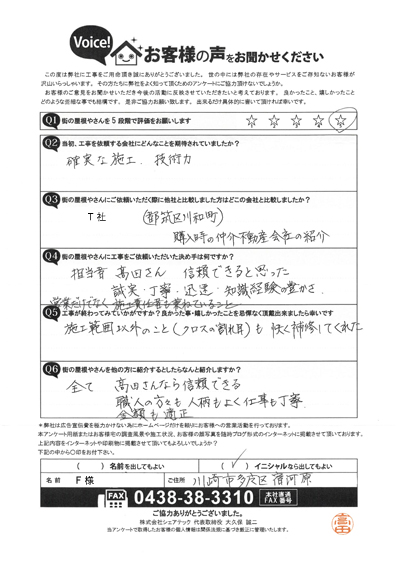 Voice!
お客様の声をお聞かせください
この度は弊社に工事をご用命頂き誠にありがとうございました。世の中には弊社の存在やサービスをご存知ないお客様が
沢山いらっしゃいます。その方たちに弊社をよく知って頂くためのアンケートにご協力頂けないでしょうか。
お客様のご意見をお聞かせいただき今後の活動に反映させていただきたいと考えております。良かったこと、嬉しかったこと
どのような些細な事でも結構です。是非ご協力お願い致します。出来るだけ具体的に書いて頂ければ幸いです。
Q1 街の屋根やさんを5段階で評価をお願いします ☆ ☆ ☆ ☆ ☆
Q2 当初、工事を依頼する会社にどんなことを期待されていましたか?
確実な施工、技術力
Q3 街の屋根やさんにご依頼いただく際に他社と比較しました方はどこの会社と比較しましたか?
T社 (都筑区川和町)
購入時の仲介不動産会社の紹介
Q4 街の屋根やさんに工事をご依頼いただいた決め手は何ですか?
担当者 高田さん 信頼できると思った
誠実・丁寧・迅速・知識経験の豊かさ、
営業だけでなく施工責任者も兼ねていること
Q5 工事が終わってみていかがですか?良かった事・嬉しかったことを忌憚なく頂戴出来ましたら幸いです
施工範囲以外のこと(クロスの割れ等)も快く補修してくれた
Q6 街の屋根やさんを他の方に紹介するとしたらなんと紹介しますか?
全て 高田さんなら信頼できる
職人の方々も人柄もよく仕事も丁寧
金額も適正
*弊社は広告宣伝費を極力かけない為にホームページだけを頼りにお客様への営業活動を行っております。
本アンケート用紙またはお客様宅の調査風景や施工状況、お客様の顔写真を随時ブログ形式のインターネットに掲載させて頂いております。
上記内容をインターネットや印刷物に掲載させて頂いてもよろしいでしょうか?
下記の中から〇印をお付け下さい。
( ) 名前を出してもよい (✓) イニシャルなら出してもよい
名前 F様 ご住所 川崎市多摩区菅河原
FAX 0438-38-3310 本社直通 FAX番号
ご協力ありがとうございました。
株式会社シェアテック 代表取締役 大久保 誠二
当アンケートで取得したお客様の個人情報は関係法令に基づき厳正に管理いたします。